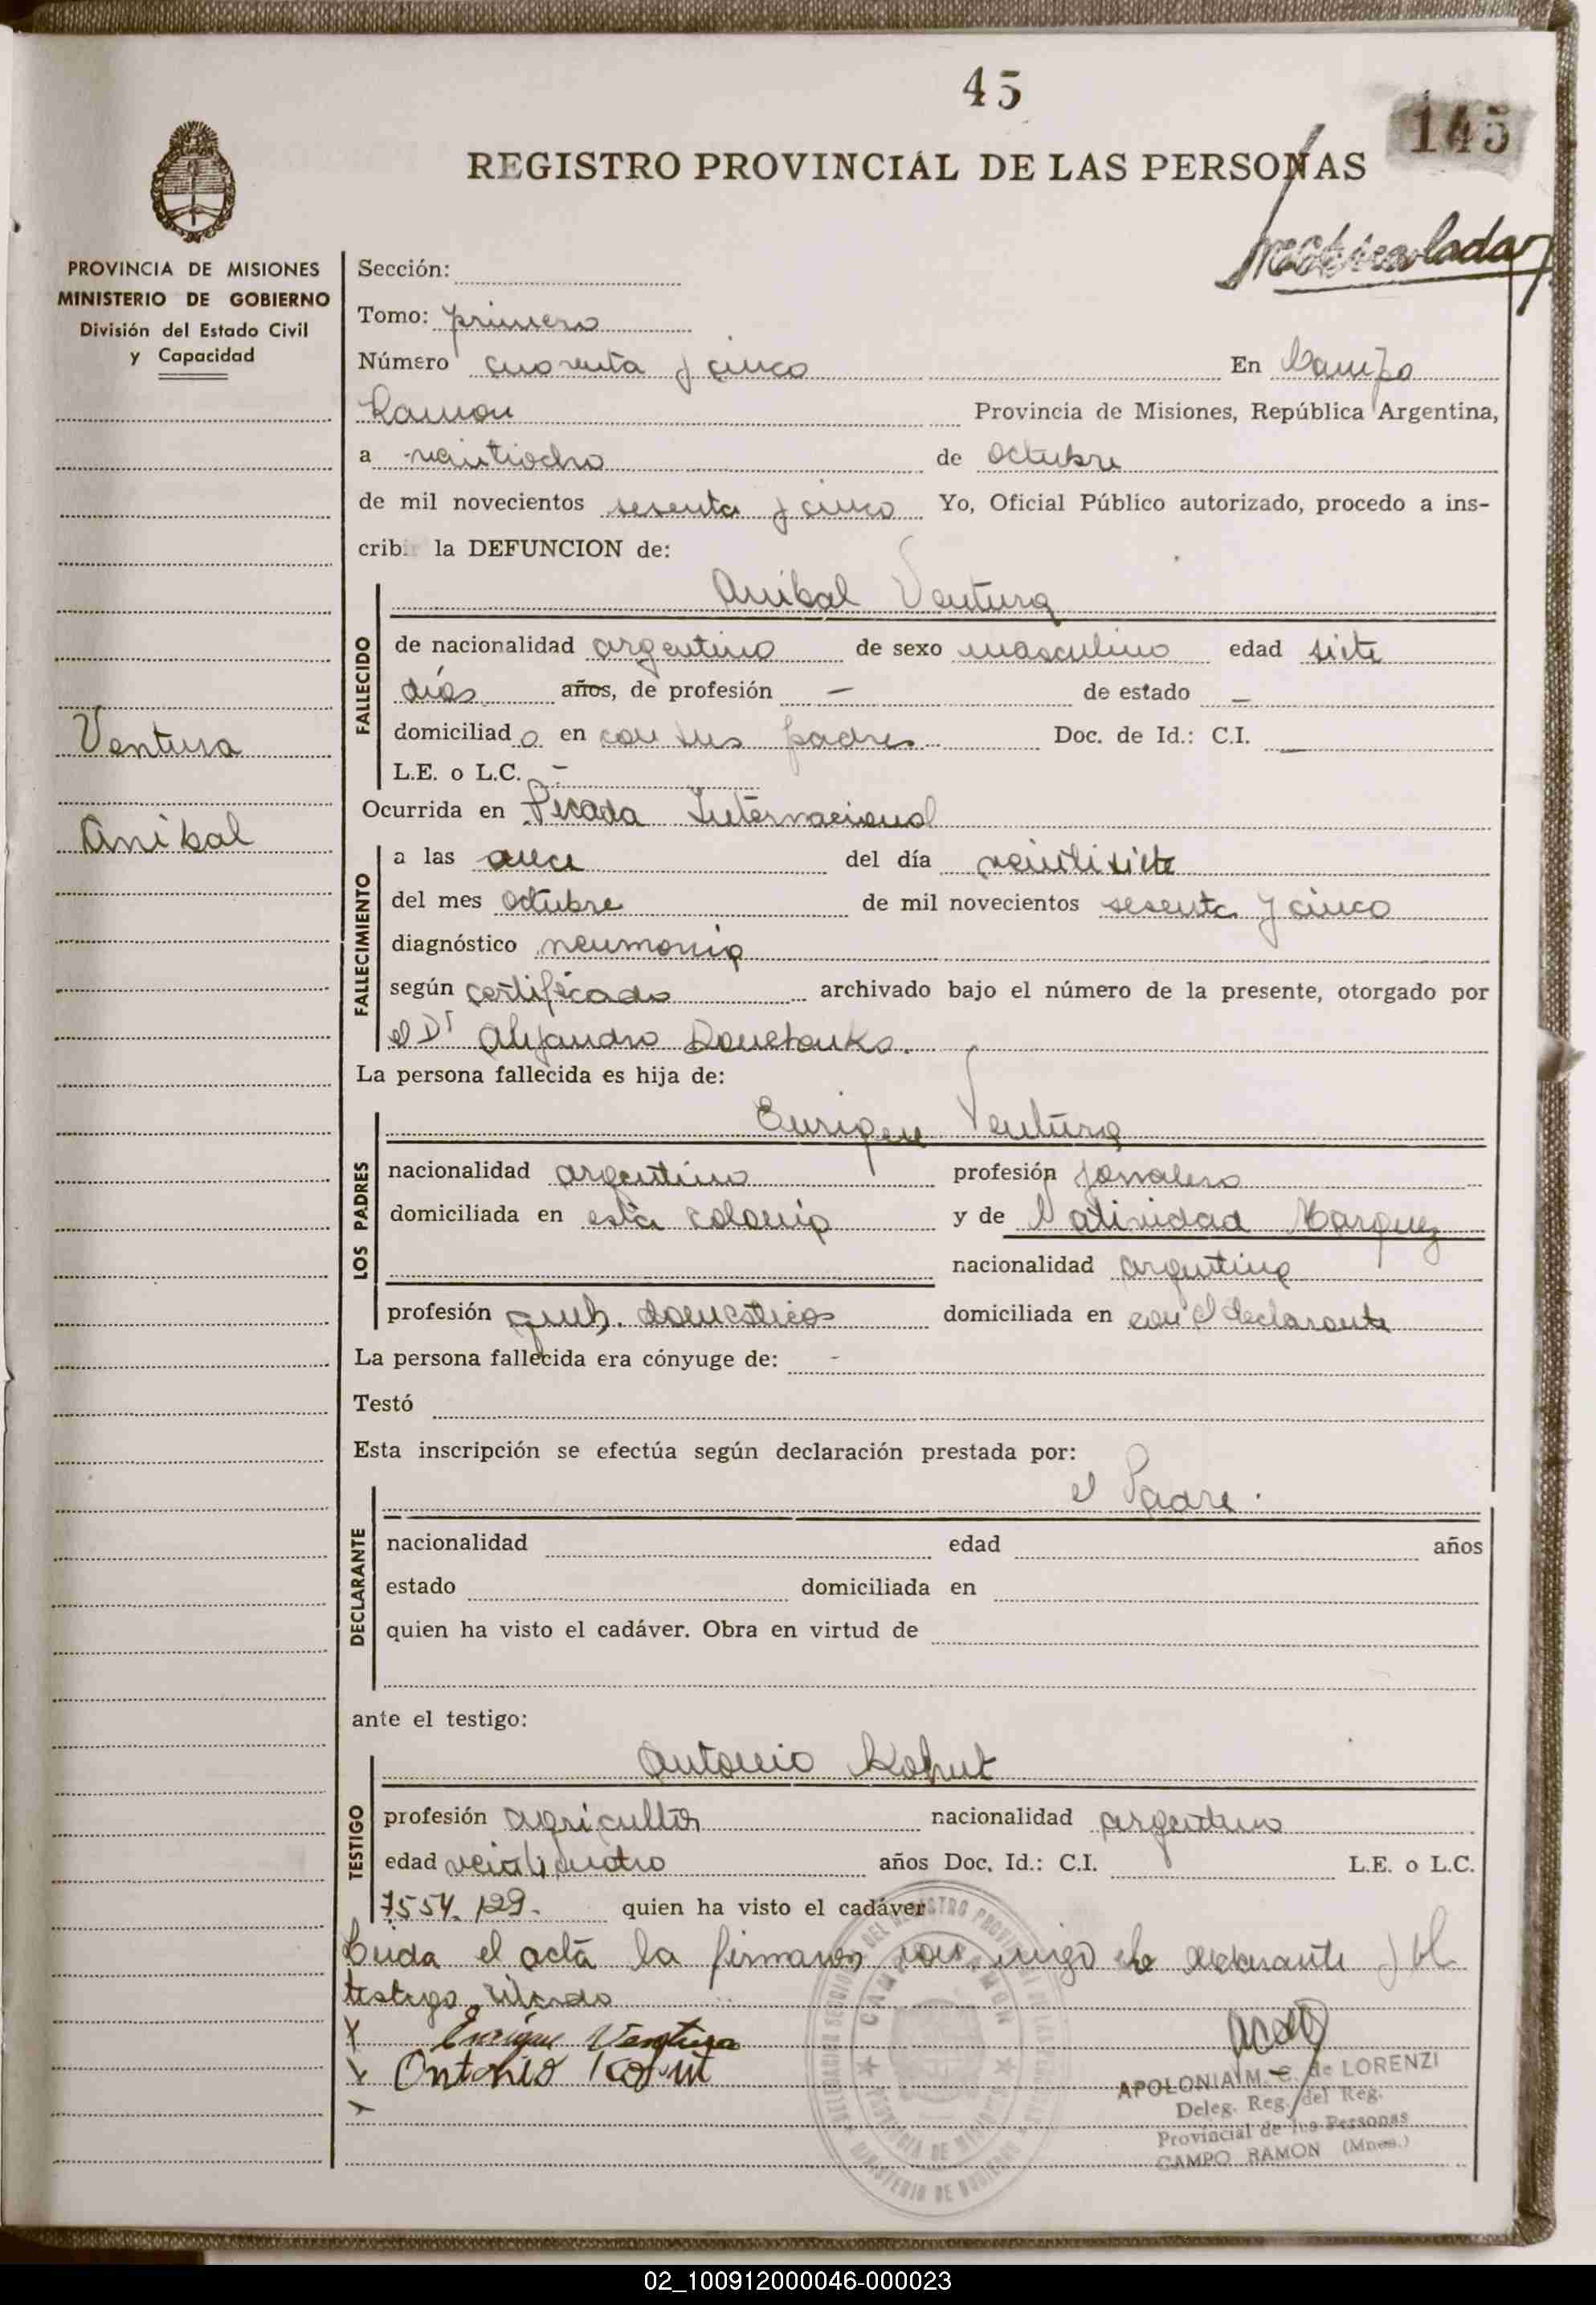 45
145
REGISTRO PROVINCIAL DE LAS PERSONAS
PROVINCIA DE MISIONES
MINISTERIO DE GOBIERNO
División del Estado Civil
y Capacidad
Ventura
Anibal
Sección:
Tomo: primero
Número cuarenta y cinco En Campo
Ramon Provincia de Misiones, República Argentina,
a veintiocho de octubre
de mil novecientos sesenta y cinco Yo, Oficial Público autorizado, procedo a ins-
cribir la DEFUNCION de:
FALLECIDO
Anibal Ventura
de nacionalidad argentino de sexo masculino edad siete
días años, de profesión — de estado —
domiciliado en con sus padres Doc. de Id.: C.I. —
L.E. o L.C. -
Ocurrida en Picada Internacional
FALLECIMIENTO
a las once del día veintisiete
del mes octubre de mil novecientos sesenta y cinco
diagnóstico neumonia
según certificado archivado bajo el número de la presente, otorgado por
el Dr Alejandro
La persona fallecida es hija de:
LOS PADRES
Enrique Ventura
nacionalidad argentino profesión jornalero
domiciliada en esta colonia y de Natividad Marquez
nacionalidad argentina
profesión queh. domesticos domiciliada en con el declarante
La persona fallecida era cónyuge de: -
Testó
Esta inscripción se efectúa según declaración prestada por:
DECLARANTE
el Padre.
nacionalidad edad años
estado domiciliada en
quien ha visto el cadáver. Obra en virtud de
ante el testigo:
TESTIGO
Antonio Kohut
profesión agricultor nacionalidad argentino
edad veinticuatro años Doc. Id.: C.I. L.E. o L.C.
7554.129.- quien ha visto el cadáver
Leida el acta la firman conmigo el declarante y el
testigo citado
x Enrique Ventura
x Antonio Kohut
x
APOLONIA M. C. de LORENZI
Deleg. Reg. del Reg.
Provincial de las Personas
CAMPO RAMON (Mnes.)
02_100912000046-000023